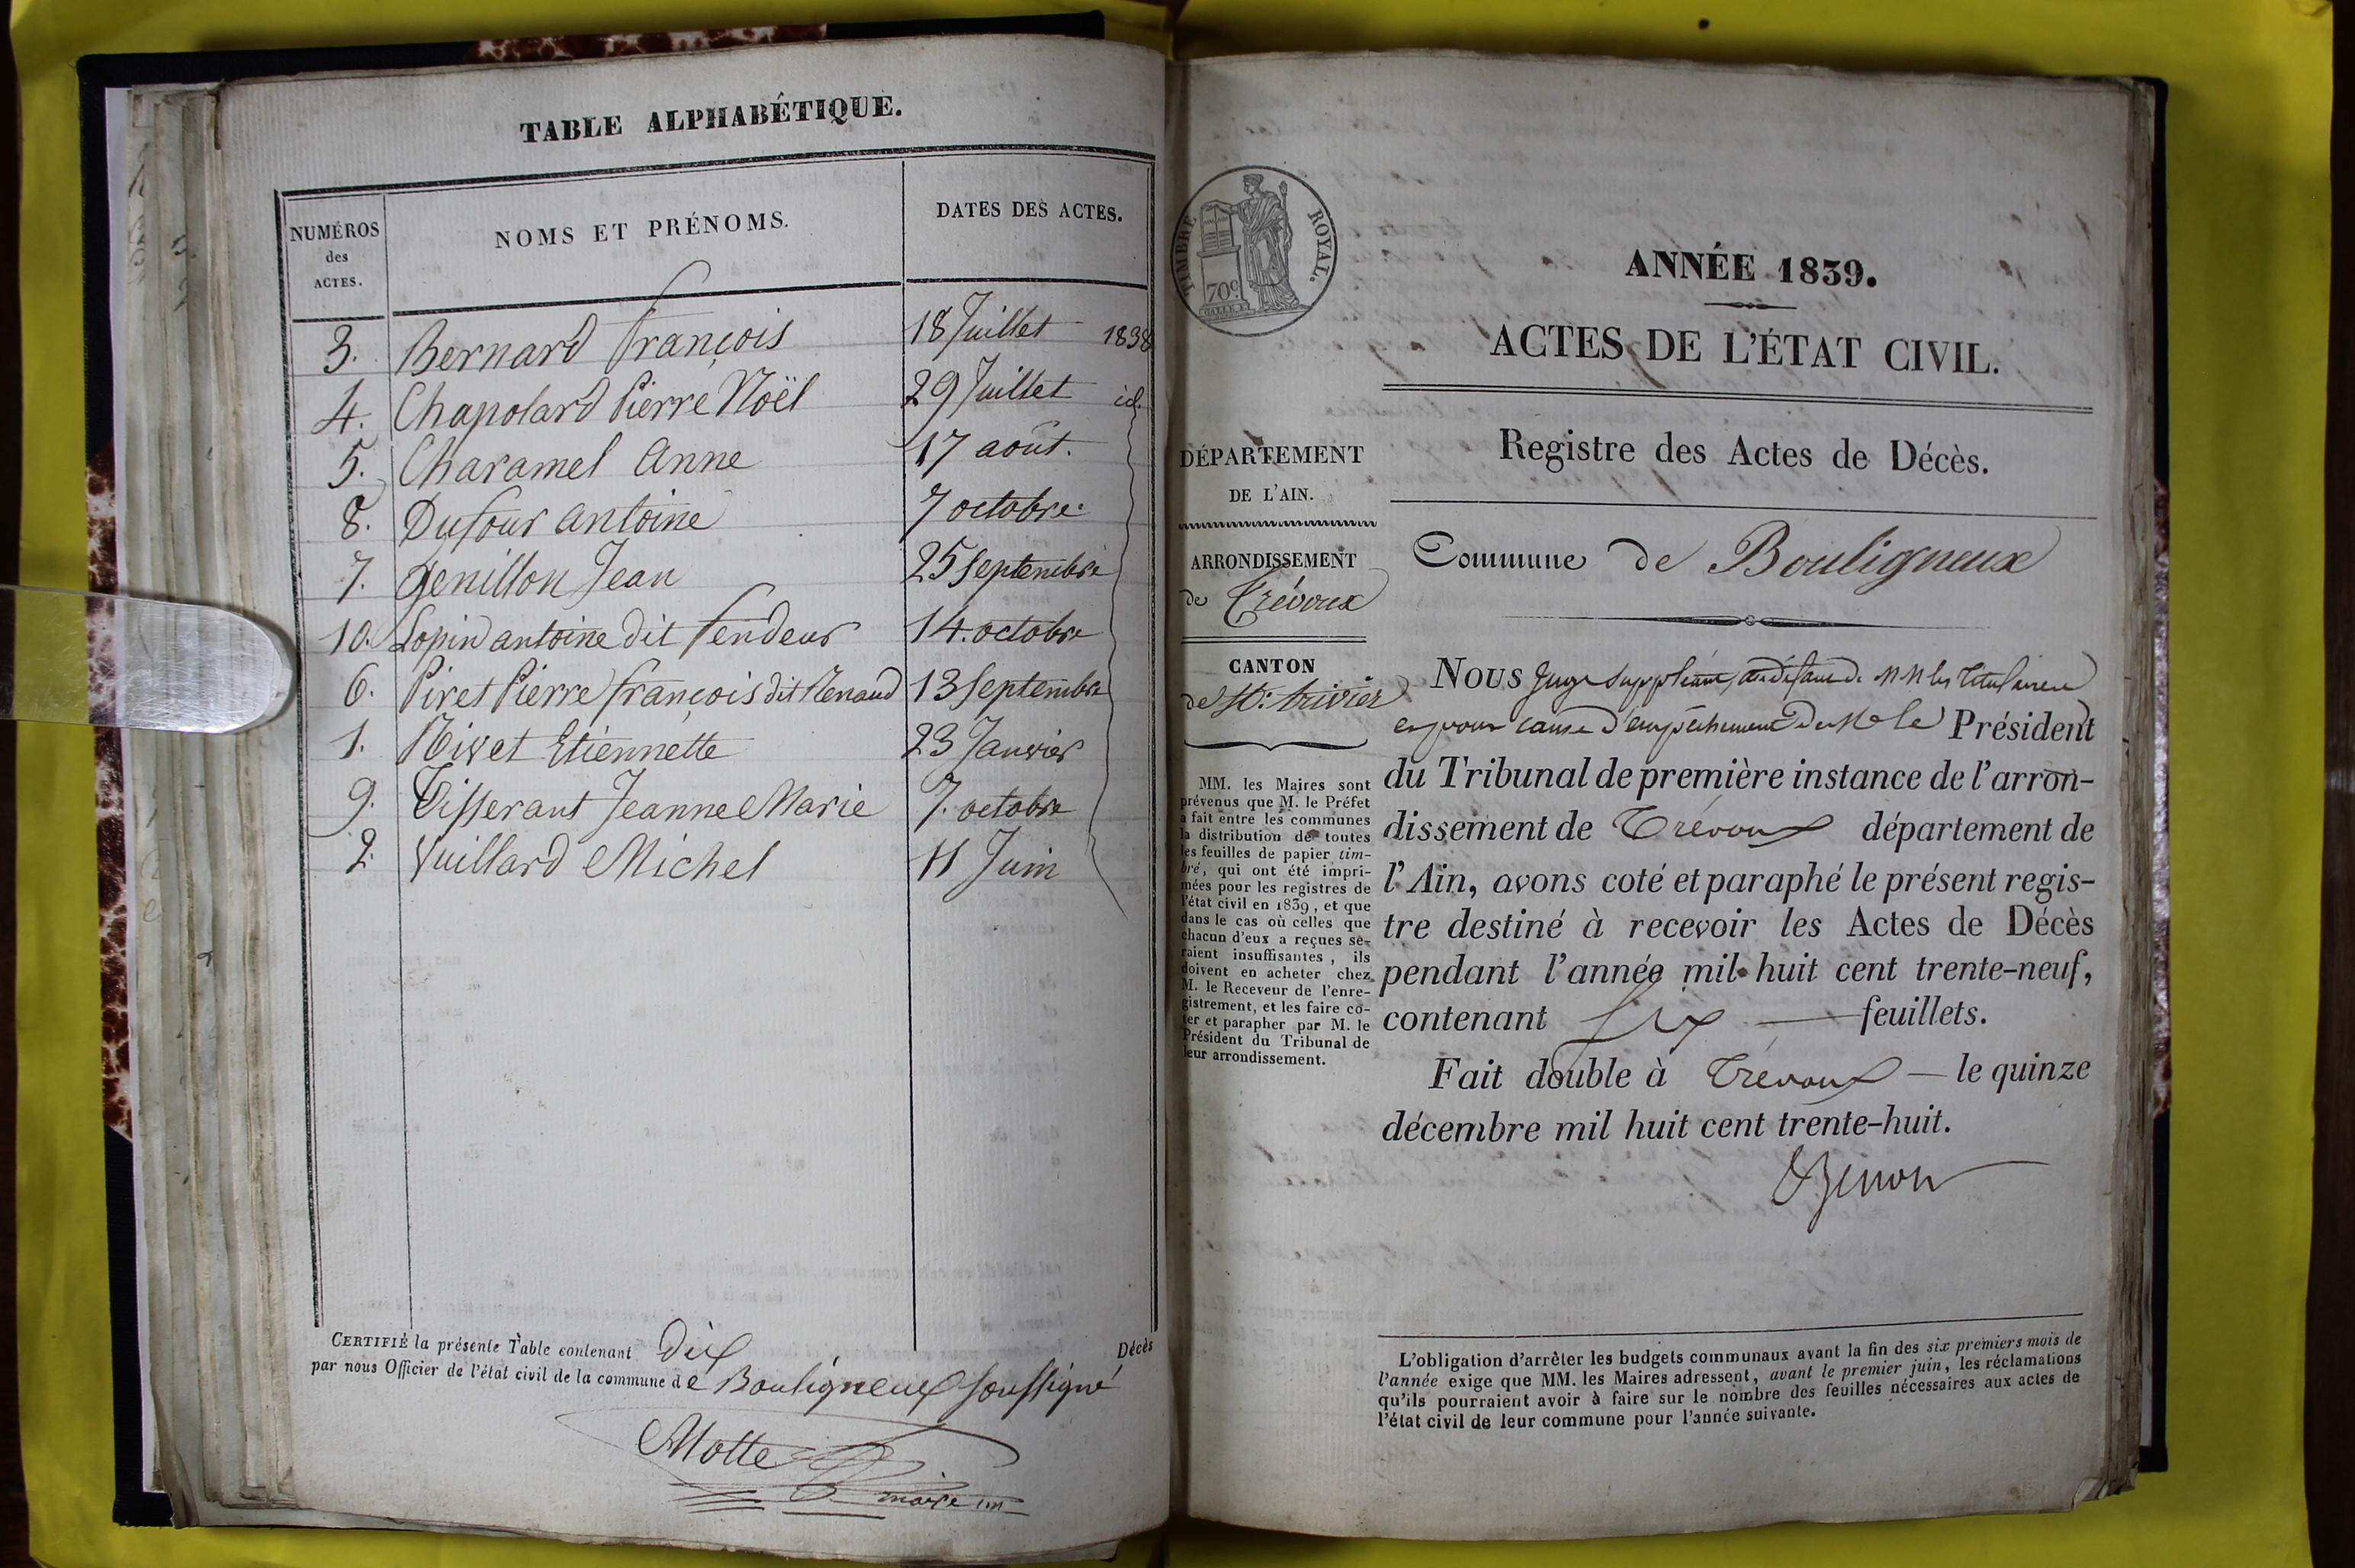 TABLE ALPHABÉTIQUE.
NUMÉROS des ACTES.
NOMS ET PRÉNOMS.
DATES DES ACTES.
3. Bernard François 18 Juillet 1838
4. Chapolard Pierre Noël 29 Juillet id.
5. Charamel Anne 17 août.
8. Dufour antoine 7 octobre.
7. Genillon Jean 25 Septembre
10. Lopin antoine dit fendeur 14. octobre
6. Piret Pierre françois dit Renaud 13 Septembre
1. Rivet Etiennette 23 Janvier
9. Tisserant Jeanne Marie 7. octobre
2. Vuillard Michel 11 Juin
CERTIFIÉ la présente Table contenant Dix Décès
par nous Officier de l'état civil de la commune de Bouligneux soussigné
Motte
maire
TIMBRE ROYAL.
70c.
ANNÉE 1839.
ACTES DE L'ÉTAT CIVIL.
Registre des Actes de Décès.
DÉPARTEMENT
DE L'AIN.
ARRONDISSEMENT
de Trévoux
CANTON
de St. trivier
MM. les Maires sont
prévenus que M. le Préfet
a fait entre les communes
la distribution de toutes
les feuilles de papier tim-
bré, qui ont été impri-
mées pour les registres de
l'état civil en 1839, et que
dans le cas où celles que
chacun d'eux a reçues se-
raient insuffisantes, ils
doivent en acheter chez
M. le Receveur de l'enre-
gistrement, et les faire co-
ter et parapher par M. le
Président du Tribunal de
leur arrondissement.
Commune de Bouligneux
NOUS Juge suppléant, au défaut de MM les titulaires
et pour cause d'empêchement de M le Président
du Tribunal de première instance de l'arron-
dissement de Trévoux département de
l'Ain, avons coté et paraphé le présent regis-
tre destiné à recevoir les Actes de Décès
pendant l'année mil huit cent trente-neuf,
contenant Six feuillets.
Fait double à Trévoux — le quinze
décembre mil huit cent trente-huit.
L'obligation d'arrêter les budgets communaux avant la fin des six premiers mois de
l'année exige que MM. les Maires adressent, avant le premier juin, les réclamations
qu'ils pourraient avoir à faire sur le nombre des feuilles nécessaires aux actes de
l'état civil de leur commune pour l'année suivante.